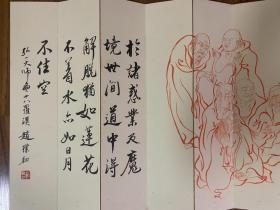 於諸惑業及魔
境世間道中得
解脱猶如蓮花
不着水亦如日月
不住空
弘一大师画十八羅漢 趙樸初